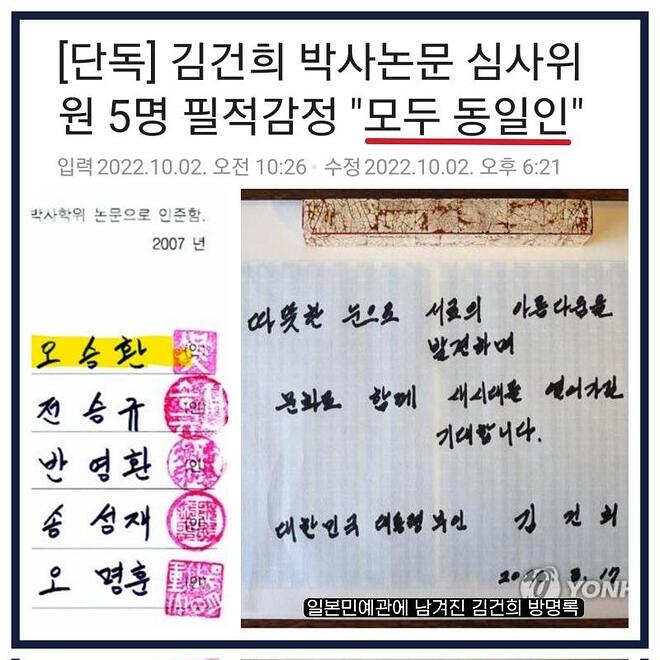 [단독] 김건희 박사논문 심사위
원 5명 필적감정 "모두 동일인"
입력 2022.10.02. 오전 10:26 · 수정 2022.10.02. 오후 6:21
박사학위 논문으로 인준함.
2007 년
오승환 (인)
전승규 (인)
반영환 (인)
송성재 (인)
오명훈 (인)
따뜻한 눈으로 서로의 아름다움을
발견하며
문화로 함께 새시대를 열어가길
기대합니다.
대한민국 대통령부인 김건희
3. 17
YONH
일본민예관에 남겨진 김건희 방명록